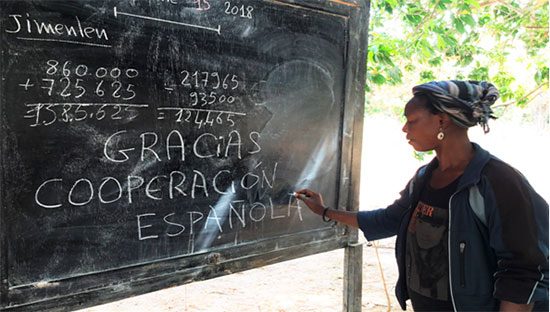 15 2018
Jimenlen
860.000
+ 725625
= 1585.625
- 217965
93500
= 124465
GRACIAS
COOPERACIÓN
ESPAÑOLA